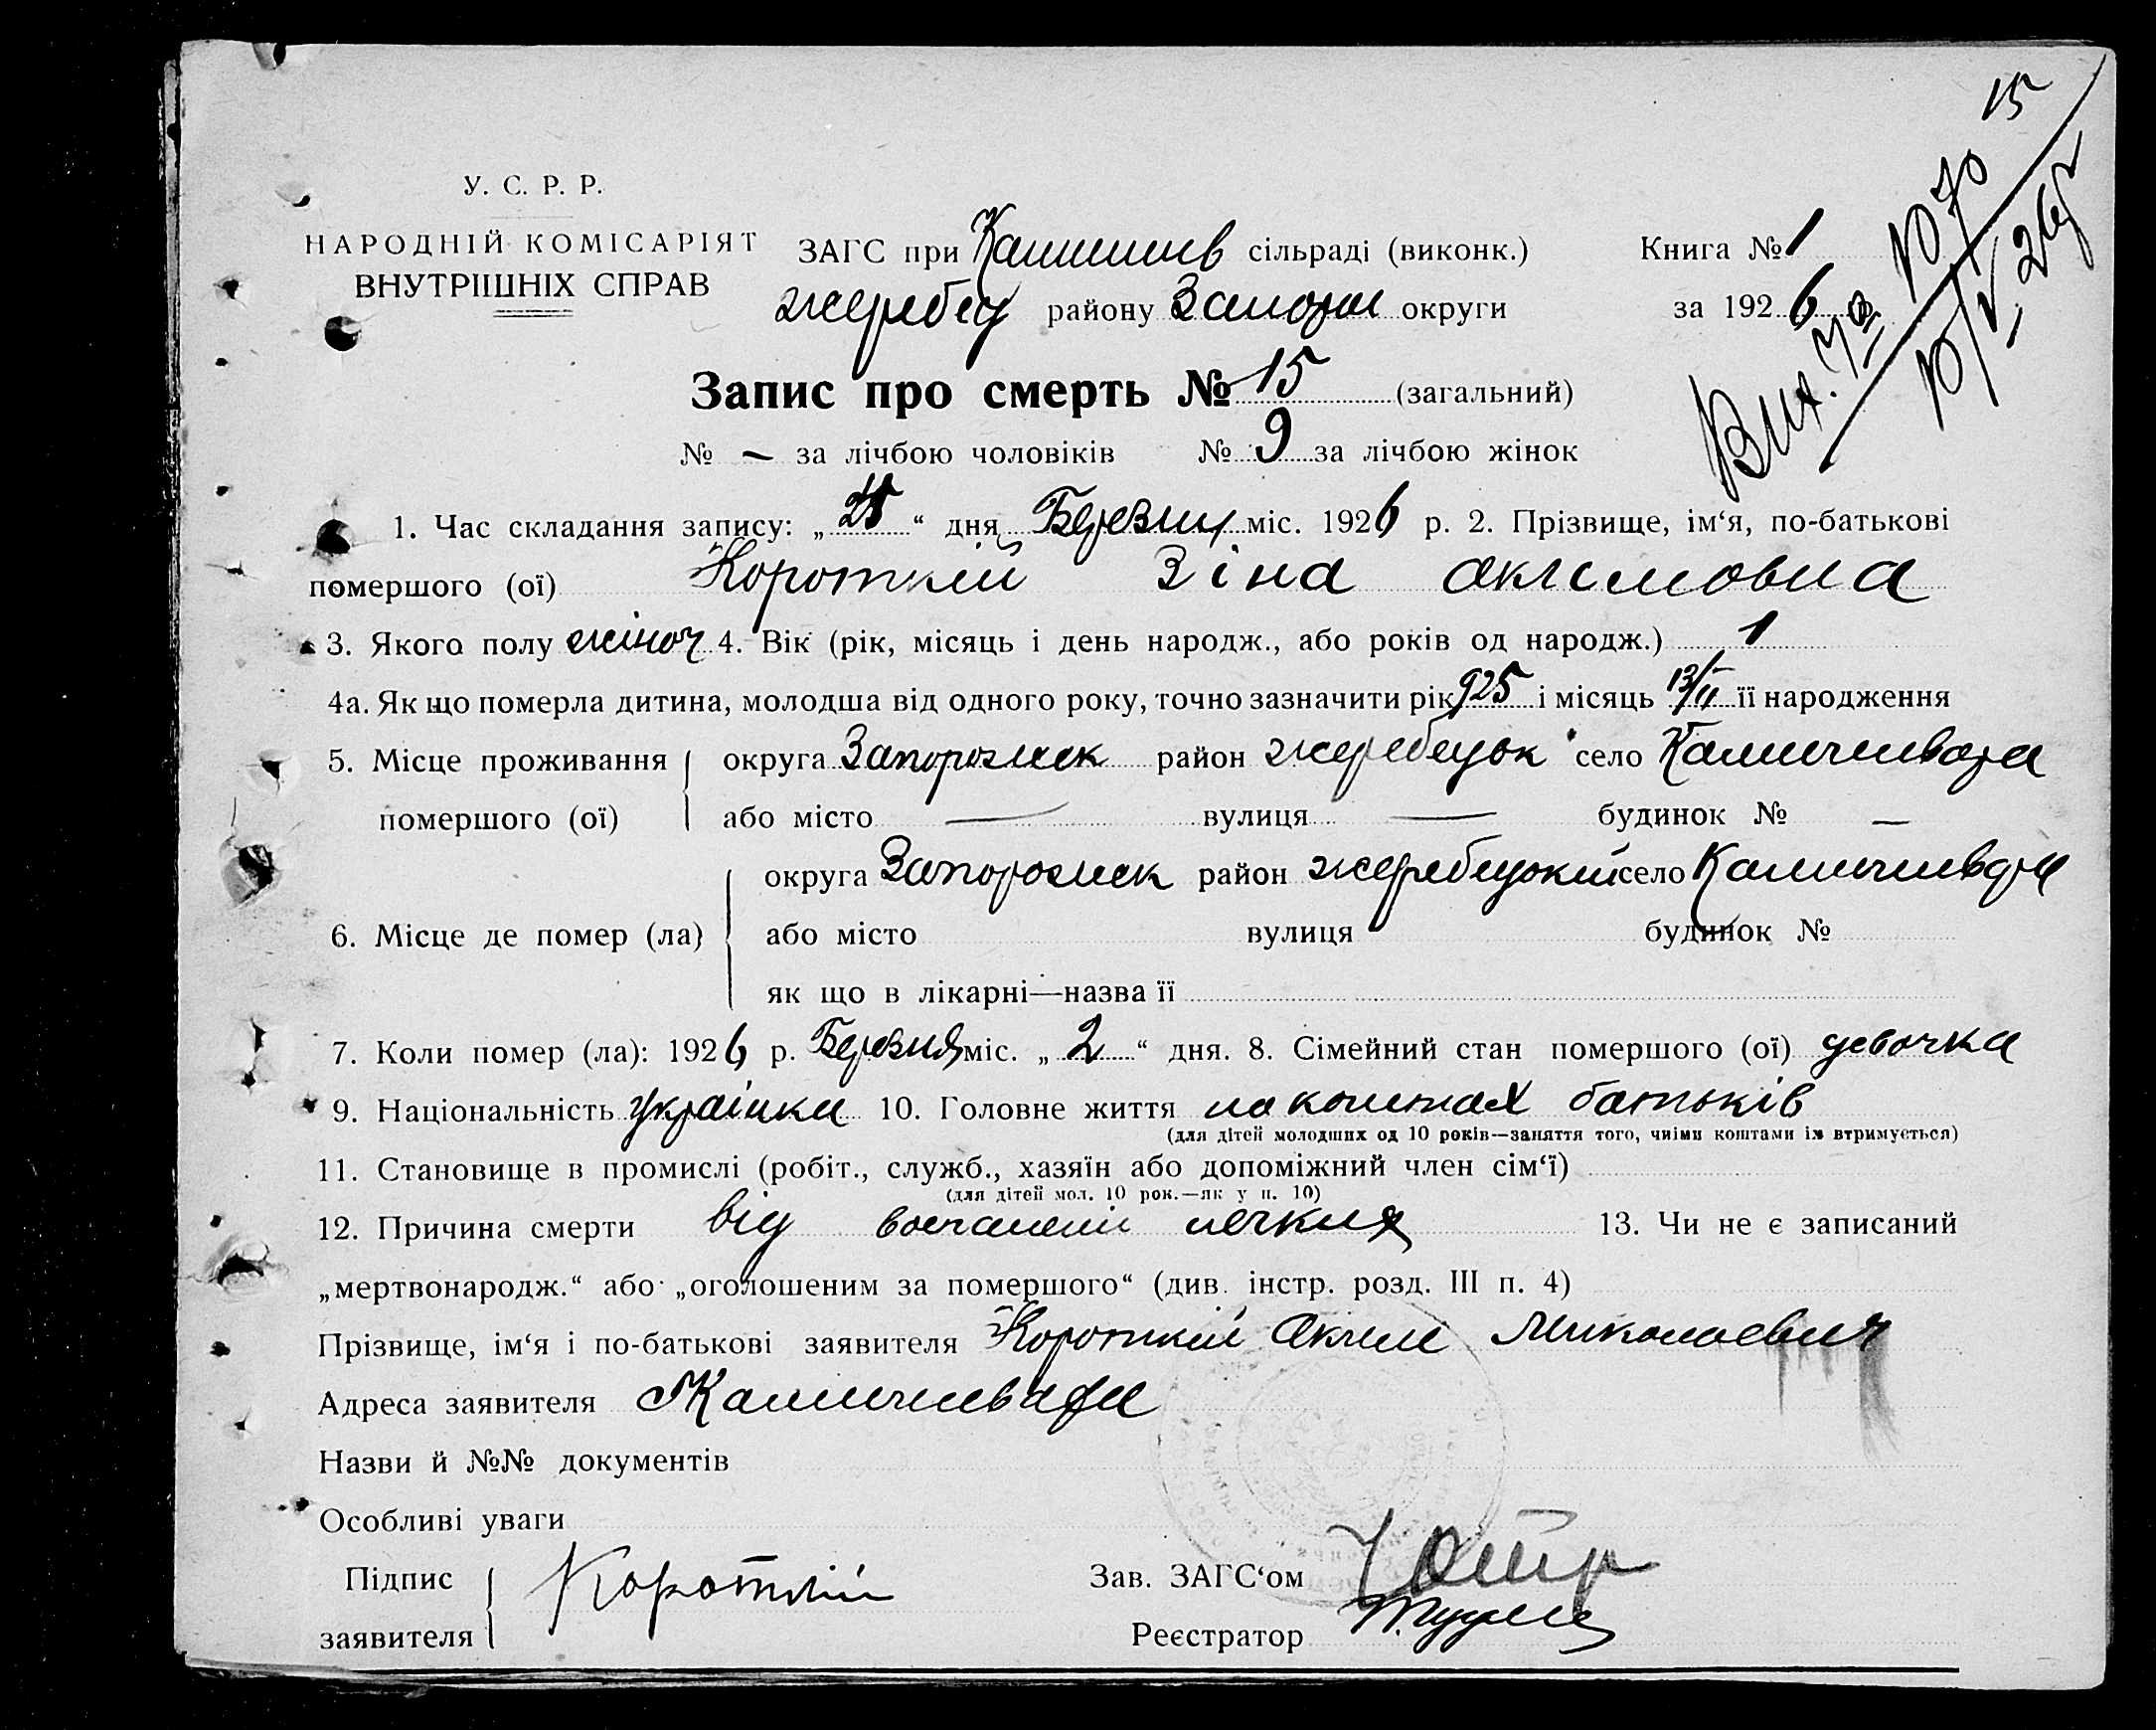 15
У. С. Р. Р.
НАРОДНІЙ КОМІСАРІЯТ
ВНУТРІШНІХ СПРАВ
ЗАГС при сільраді (виконк.)
Жеребец району Запорж округи
Книга № 1
за 1926
Вих. 1070
10/V 26р
Запис про смерть № 15 (загальний)
№ – за лічбою чоловіків № 9 за лічбою жінок
1. Час складання запису: „ “ дня Березня міс. 1926 р. 2. Прізвище, ім‘я, по-батькові
помершого (ої) Короткий Зіна Акимовна
3. Якого полу жіноч 4. Вік (рік, місяць і день народж., або років од народж.) 1
4а. Як що померла дитина, молодша від одного року, точно зазначити рік 925 і місяць 13/II її народження
5. Місце проживання округа Запорожск район Жеребецьк село
помершого (ої) або місто — вулиця — будинок № —
округа Запорожск район Жеребецький село
6. Місце де помер (ла) або місто вулиця будинок №
як що в лікарні—назва її
7. Коли помер (ла): 1926 р. Березня міс. „ 2 “ дня. 8. Сімейний стан помершого (ої) девочка
9. Національність українка 10. Головне життя на коштах батьків
(для дітей молодших од 10 років—заняття того, чиїми коштами їх втримується)
11. Становище в промислі (робіт., служб., хазяїн або допоміжний член сім‘ї)
(для дітей мол. 10 рок.—як у п. 10)
12. Причина смерти від воспаленій легких 13. Чи не є записаний
„мертвонародж.“ або „оголошеним за помершого“ (див. інстр. розд. III п. 4)
Прізвище, ім‘я і по-батькові заявителя Короткий Аким Миколаевич
Адреса заявителя
Назви й №№ документів
Особливі уваги
Підпис
заявителя Короткий
Зав. ЗАГС‘ом
Реєстратор